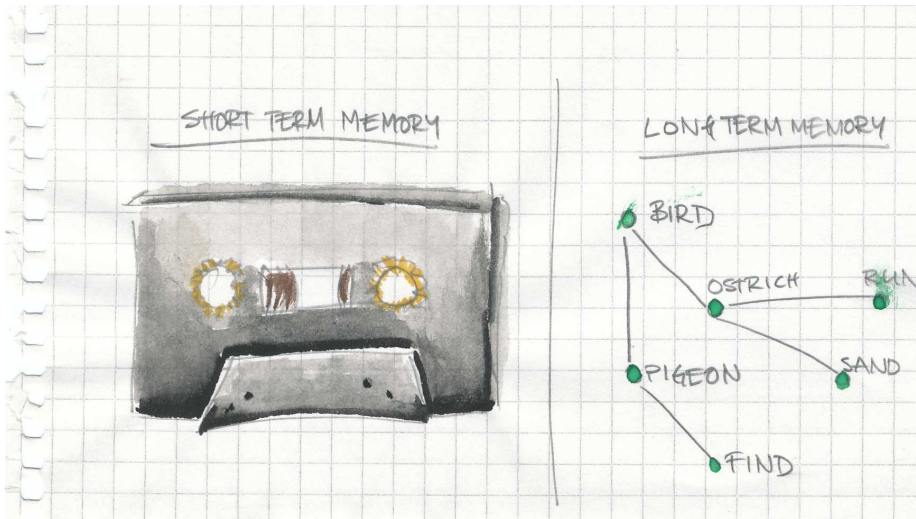 SHORT TERM MEMORY
LONG TERM MEMORY
BIRD
OSTRICH
RUN
PIGEON
SAND
FIND